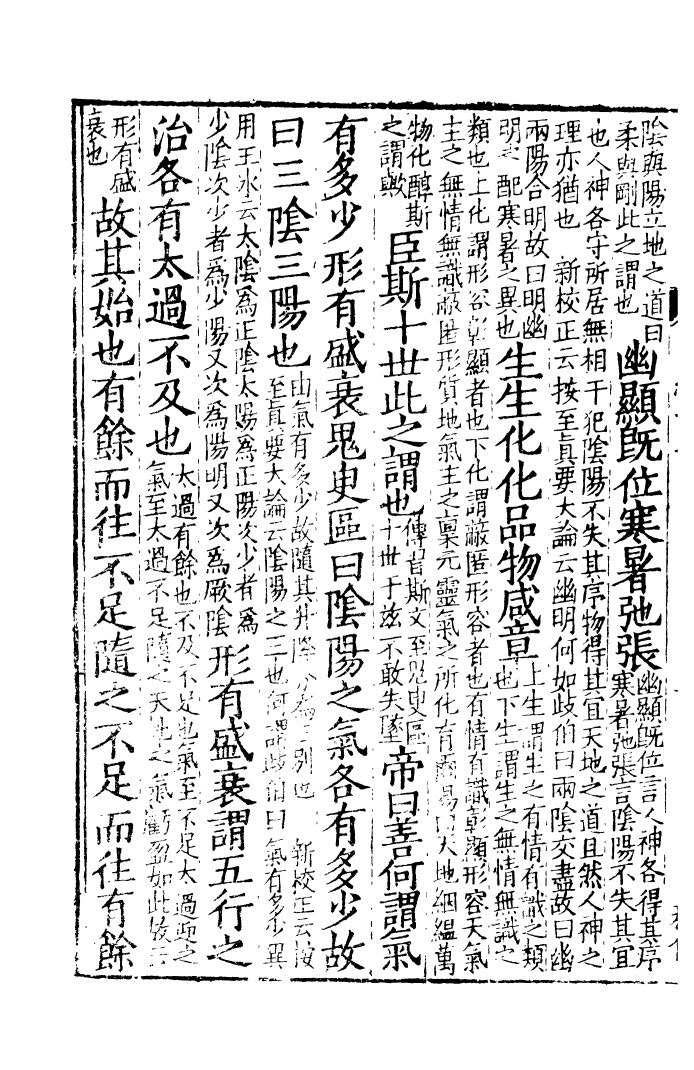 隂與陽立地之道曰
柔與剛此之謂也
幽顯旣位寒暑弛張
幽顯旣位言人神各得其序
寒暑弛張言隂陽不失其宜
也人神各守所居無相干犯隂陽不失其序物得其宜天地之道且然人神之
理亦猶也　新校正云按至眞要大論云幽明何如歧伯曰兩隂交盡故曰幽
兩陽合明故曰明幽
明之配寒暑之異也
生生化化品物咸章
上生謂生之有情有識之類
也下生謂生之無情無識之
類也上化謂形容彰顯者也下化謂蔽匿形容者也有情有識彰顯形容天氣
主之無情無識蔽匿形質地氣主之稟元靈氣之所化育爾易曰天地絪縕萬
物化醇斯
之謂歟
臣斯十丗此之謂也
傳曰斯文至鬼臾區
十丗于兹不敢失墜
帝曰善何謂氣
有多少形有盛衰鬼臾區曰隂陽之氣各有多少故
曰三隂三陽也
由氣有多少故隨其升降分爲三別也　新校正云按
至眞要大論云隂陽之三也何謂歧伯曰氣有多少異
用王冰云太隂爲正隂太陽爲正陽次少者爲
少隂次少者爲少陽又次爲陽明又次爲厥隂
形有盛衰謂五行之
治各有太過不及也
太過有餘也不及不足也氣至不足太過迎之
氣至太過不足隨之天地之氣虧盈如此故云
形有盛
衰也
故其始也有餘而往不足隨之不足而往有餘